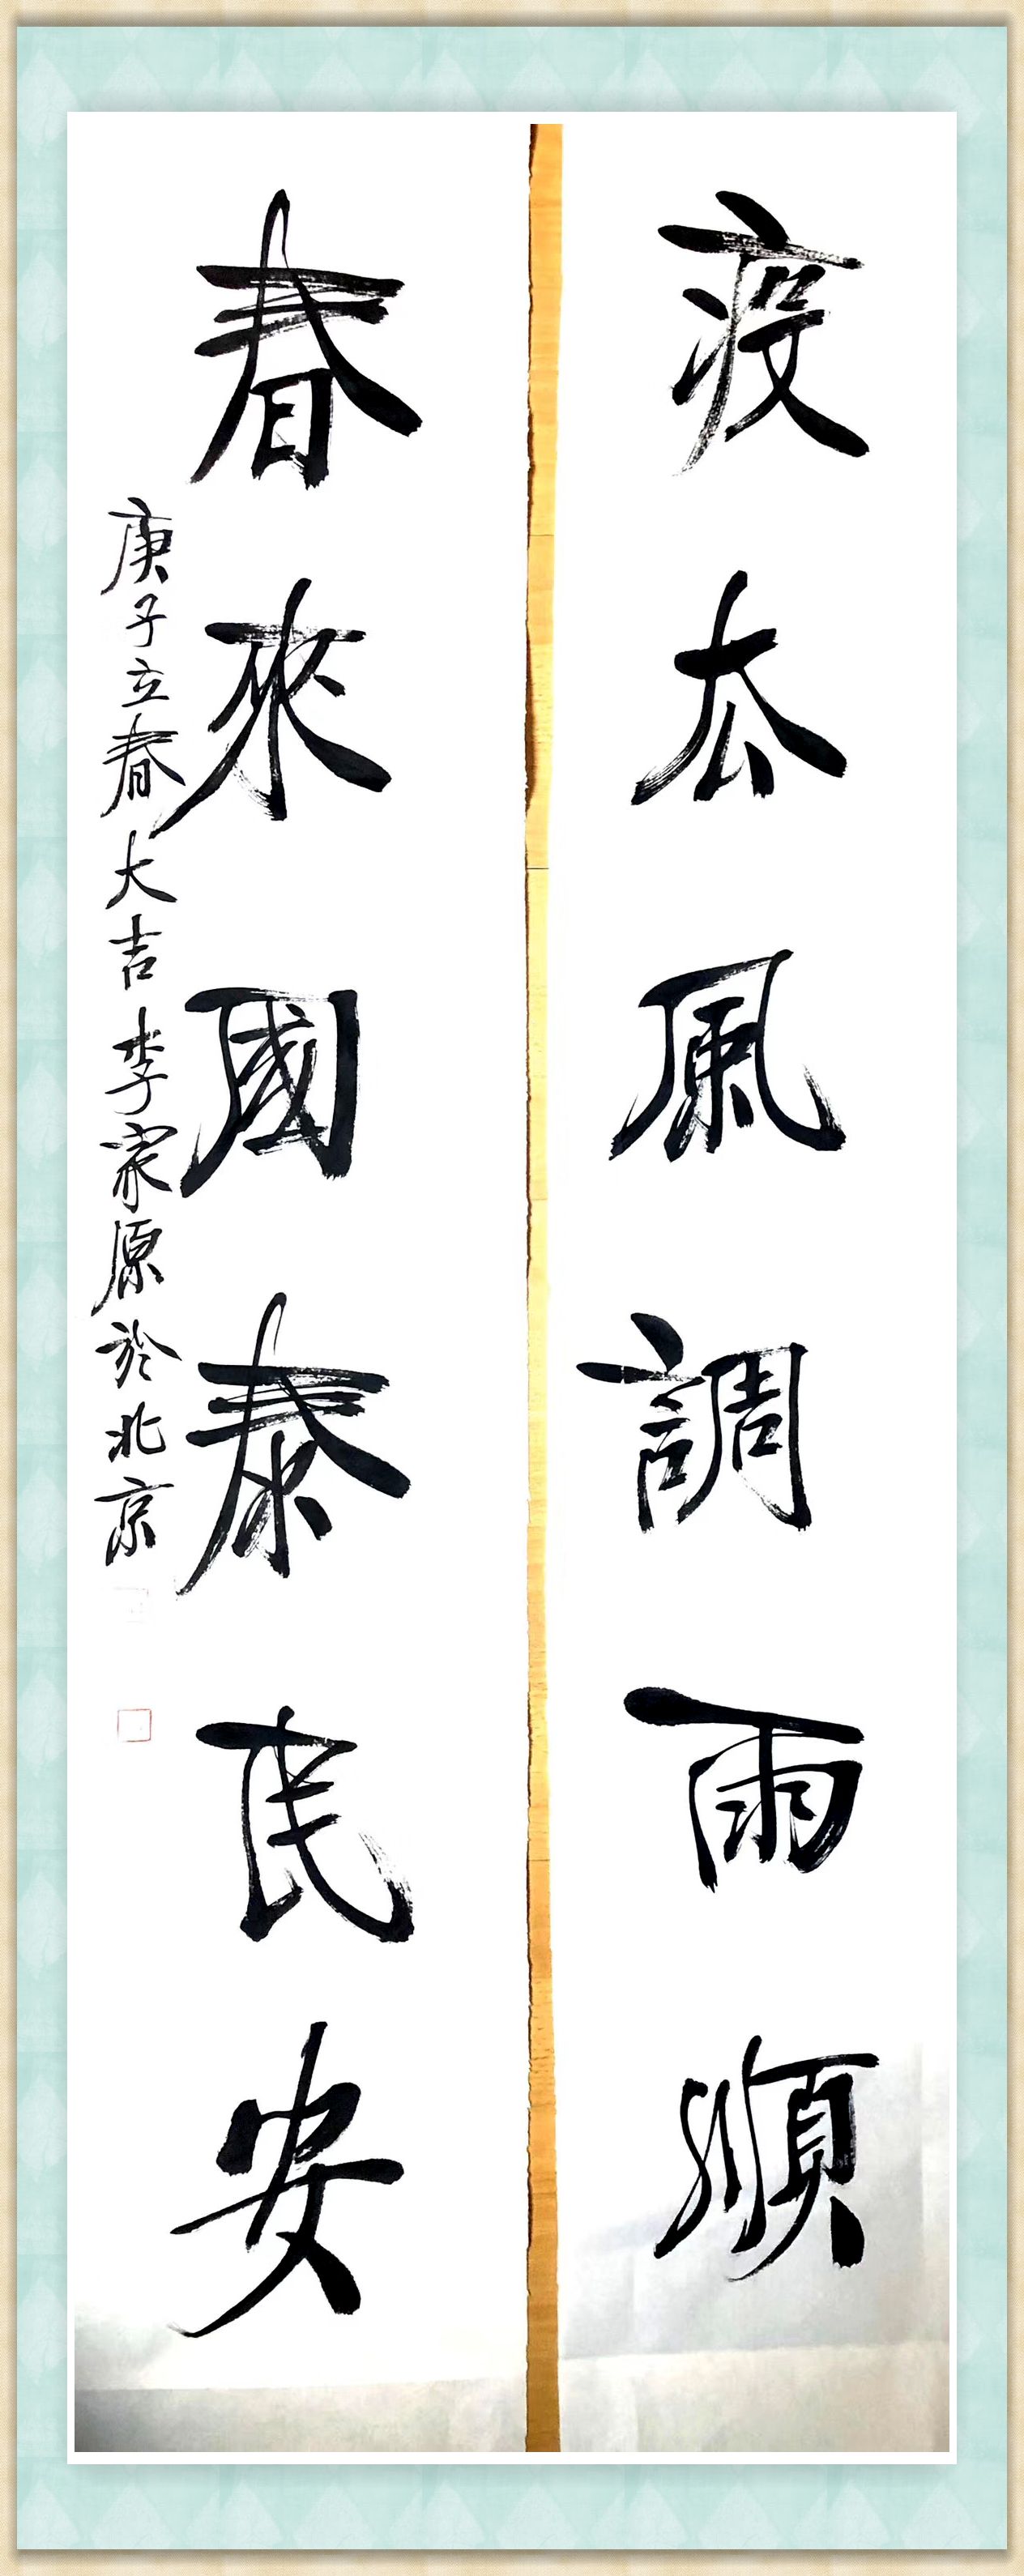 疫去風調雨順
春來國泰民安
庚子立春大吉李家原於北京